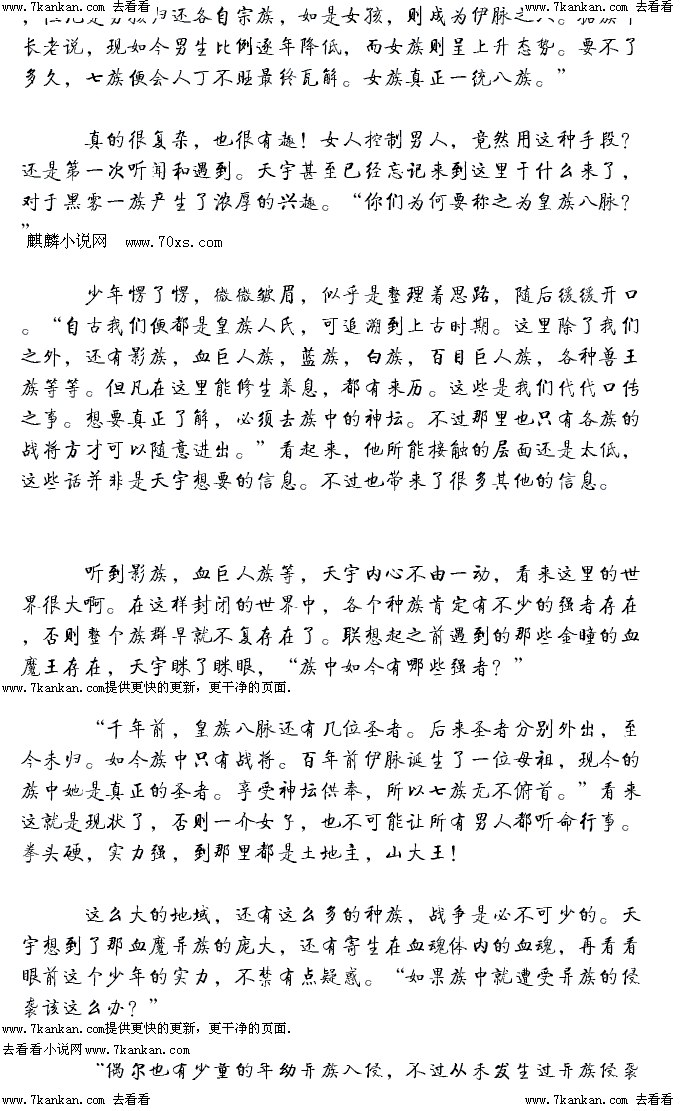 www.7kankan.com 去看看 www.7kankan.com 去看看
归还各自宗族，如是女孩，则成为伊脉之人。
长老说，现如今男生比例逐年降低，而女族则呈上升态势。要不了
多久，七族便会人丁不旺最终瓦解。女族真正一统八族。”
真的很复杂，也很有趣！女人控制男人，竟然用这种手段？
还是第一次听闻和遇到。天宇甚至已经忘记来到这里干什么来了，
对于黑雾一族产生了浓厚的兴趣。“你们为何要称之为皇族八脉？
”
麒麟小说网 www.70xs.com
少年愣了愣，微微皱眉，似乎是整理着思路，随后缓缓开口
。“自古我们便都是皇族人氏，可追溯到上古时期。这里除了我们
之外，还有影族，血巨人族，蓝族，白族，百目巨人族，各种兽王
族等等。但凡在这里能修生养息，都有来历。这些是我们代代口传
之事。想要真正了解，必须去族中的神坛。不过那里也只有各族的
战将方才可以随意进出。”看起来，他所能接触的层面还是太低，
这些话并非是天宇想要的信息。不过也带来了很多其他的信息。
听到影族，血巨人族等，天宇内心不由一动，看来这里的世
界很大啊。在这样封闭的世界中，各个种族肯定有不少的强者存在
，否则整个族群早就不复存在了。联想起之前遇到的那些金瞳的血
魔王存在，天宇眯了眯眼，“族中如今有哪些强者？”
www.7kankan.com提供更快的更新，更干净的页面.
“千年前，皇族八脉还有几位圣者。后来圣者分别外出，至
今未归。如今族中只有战将。百年前伊脉诞生了一位母祖，现今的
族中她是真正的圣者。享受神坛供奉，所以七族无不俯首。”看来
这就是现状了，否则一介女子，也不可能让所有男人都听命行事。
拳头硬，实力强，到那里都是土地主，山大王！
这么大的地域，还有这么多的种族，战争是必不可少的。天
宇想到了那血魔异族的庞大，还有寄生在血魂体内的血魂，再看看
眼前这个少年的实力，不禁有点疑惑。“如果族中就遭受异族的侵
袭该这么办？”
www.7kankan.com提供更快的更新，更干净的页面.
去看看小说网www.7kankan.com
“偶尔也有少量的年幼异族入侵，不过从未发生过异族侵袭
www.7kankan.com 去看看 www.7kankan.com 去看看